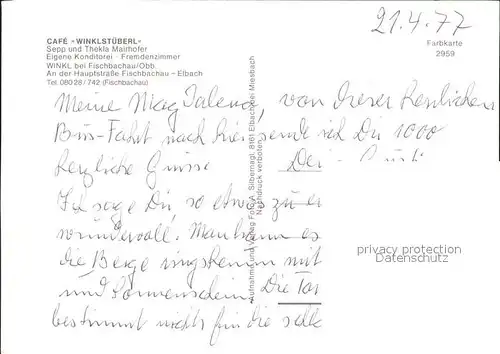 CAFÉ »WINKLSTÜBERL«
Sepp und Thekla Mairhofer
Eigene Konditorei · Fremdenzimmer
WINKL bei Fischbachau/Obb.
An der Hauptstraße Fischbachau – Elbach
Tel. 08028/742 (Fischbachau)
21.4.77
Farbkarte
2959
Aufnahme und Verlag Foto A. Silbernagl, 8161 Elbach bei Miesbach
Nachdruck verboten
Meine von dieser herrlichen
Bus-Fahrt nach hier sende ich Dir 1000
herzliche Grüsse
Ich sage Dir so etwas zu
wundervoll. Man kann es
die Berge ringsherum mit
und Sonnenschein. Die
bestimmt nichts für die
privacy protection
Datenschutz